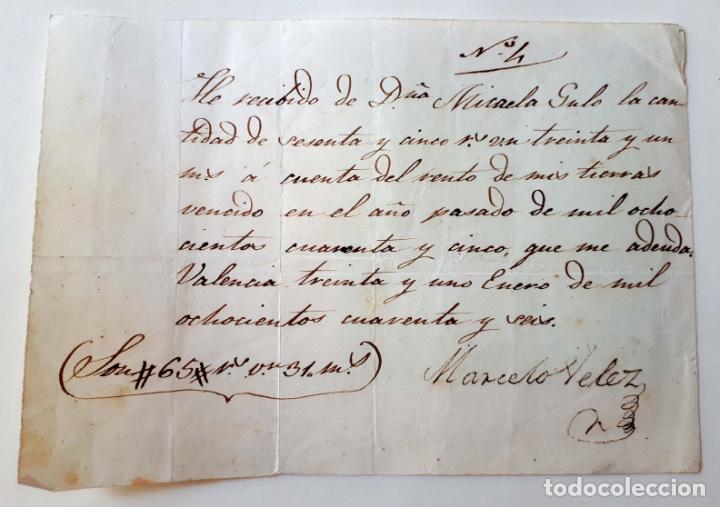 N.º 4
He recibido de D.ña Micaela Gulo la can-
tidad de sesenta y cinco r.s v.n treinta y un
m.s á cuenta del rento de mis tierras
vencido en el año pasado de mil ocho-
cientos cuarenta y cinco, que me adeuda.
Valencia treinta y uno Enero de mil
ochocientos cuarenta y seis.
(Son #65# r.s v.n 31 m.s)
Marcelo Velez
todocoleccion.net